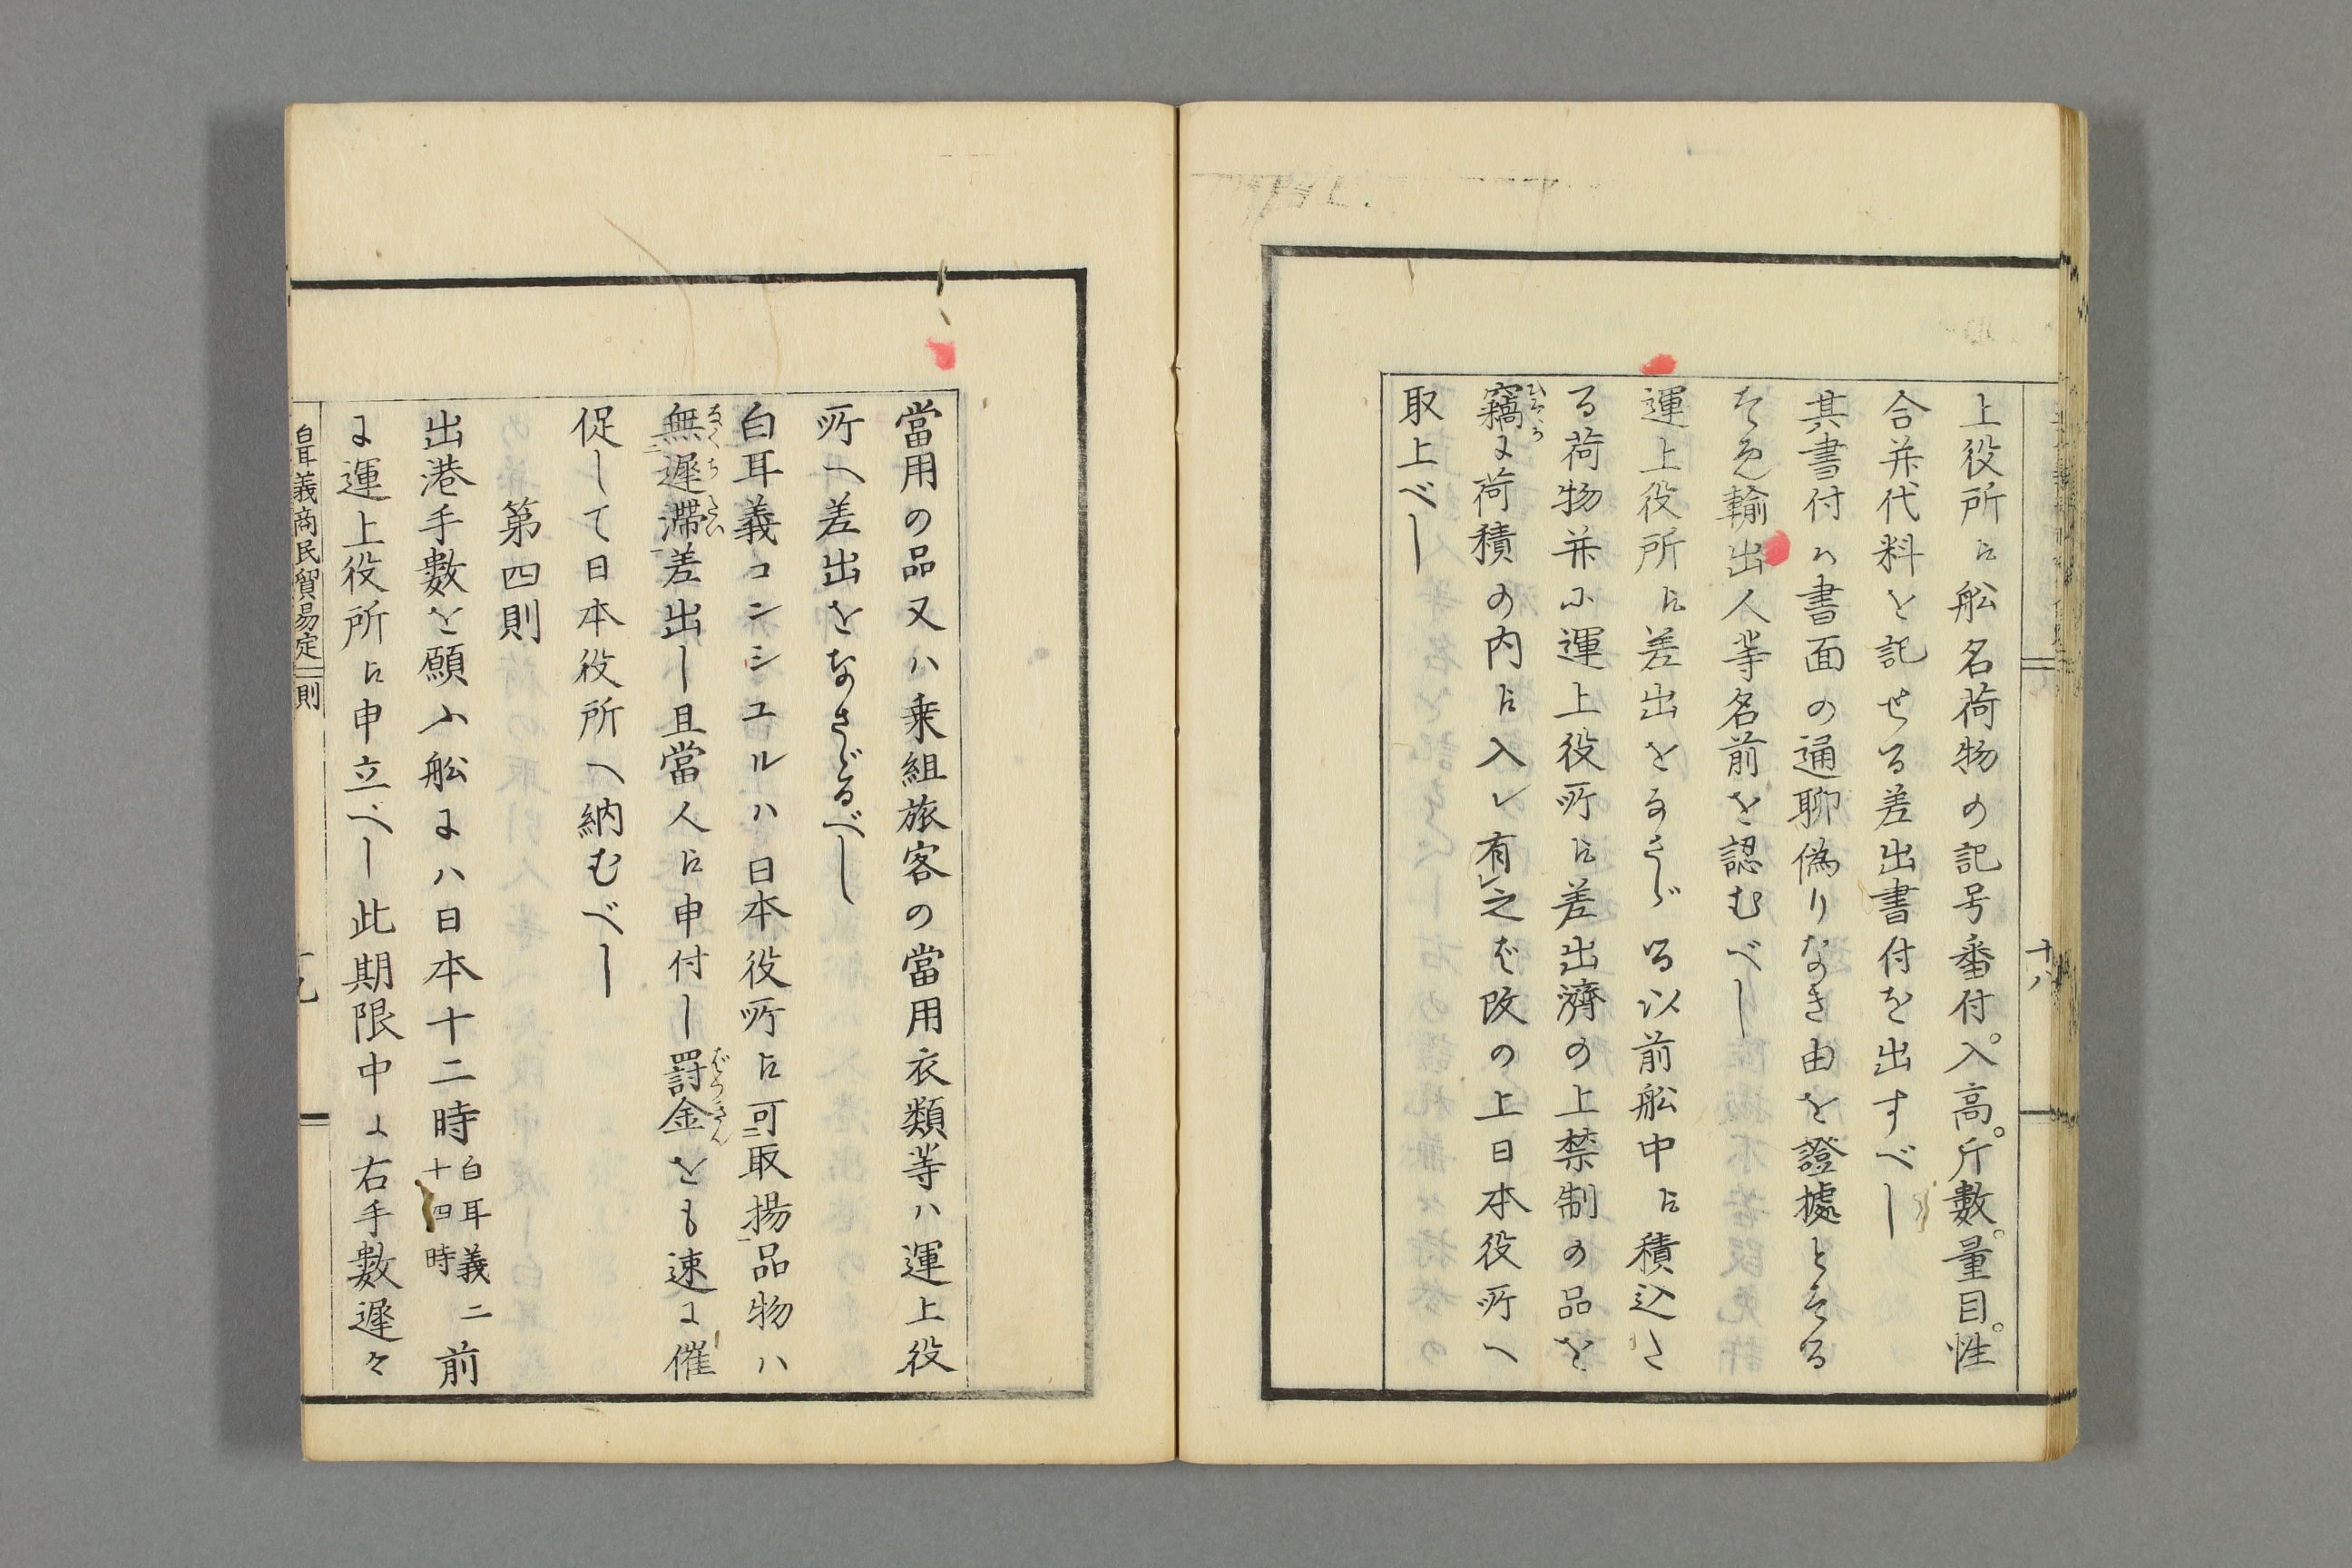 上役所に舩名荷物の記号番付。入高。斤數。量目。性
合并代料を記せる差出書付を出すべし
其書付ハ書面の通聊偽りなき由を證據とする
ため輸出人等名前を認むべし
運上役所に差出をなさゞる以前舩中に積込た
る荷物并に運上役所に差出濟の上禁制の品を
竊に荷積の内に入レ有レ之ば改の上日本役所へ
取上べし
十八
當用の品又ハ乗組旅客の當用衣類等ハ運上役
所へ差出をなさゞるべし
白耳義コンシユルハ日本役所に可二取揚一品物ハ
無二遲滯一差出し且當人に申付し罸金をも速に催
促して日本役所へ納むべし
第四則
出港手數を願ふ舩にハ日本十二時白耳義二十四時前
に運上役所に申立べし此期限中に右手數遲々
白耳義商民貿易定則